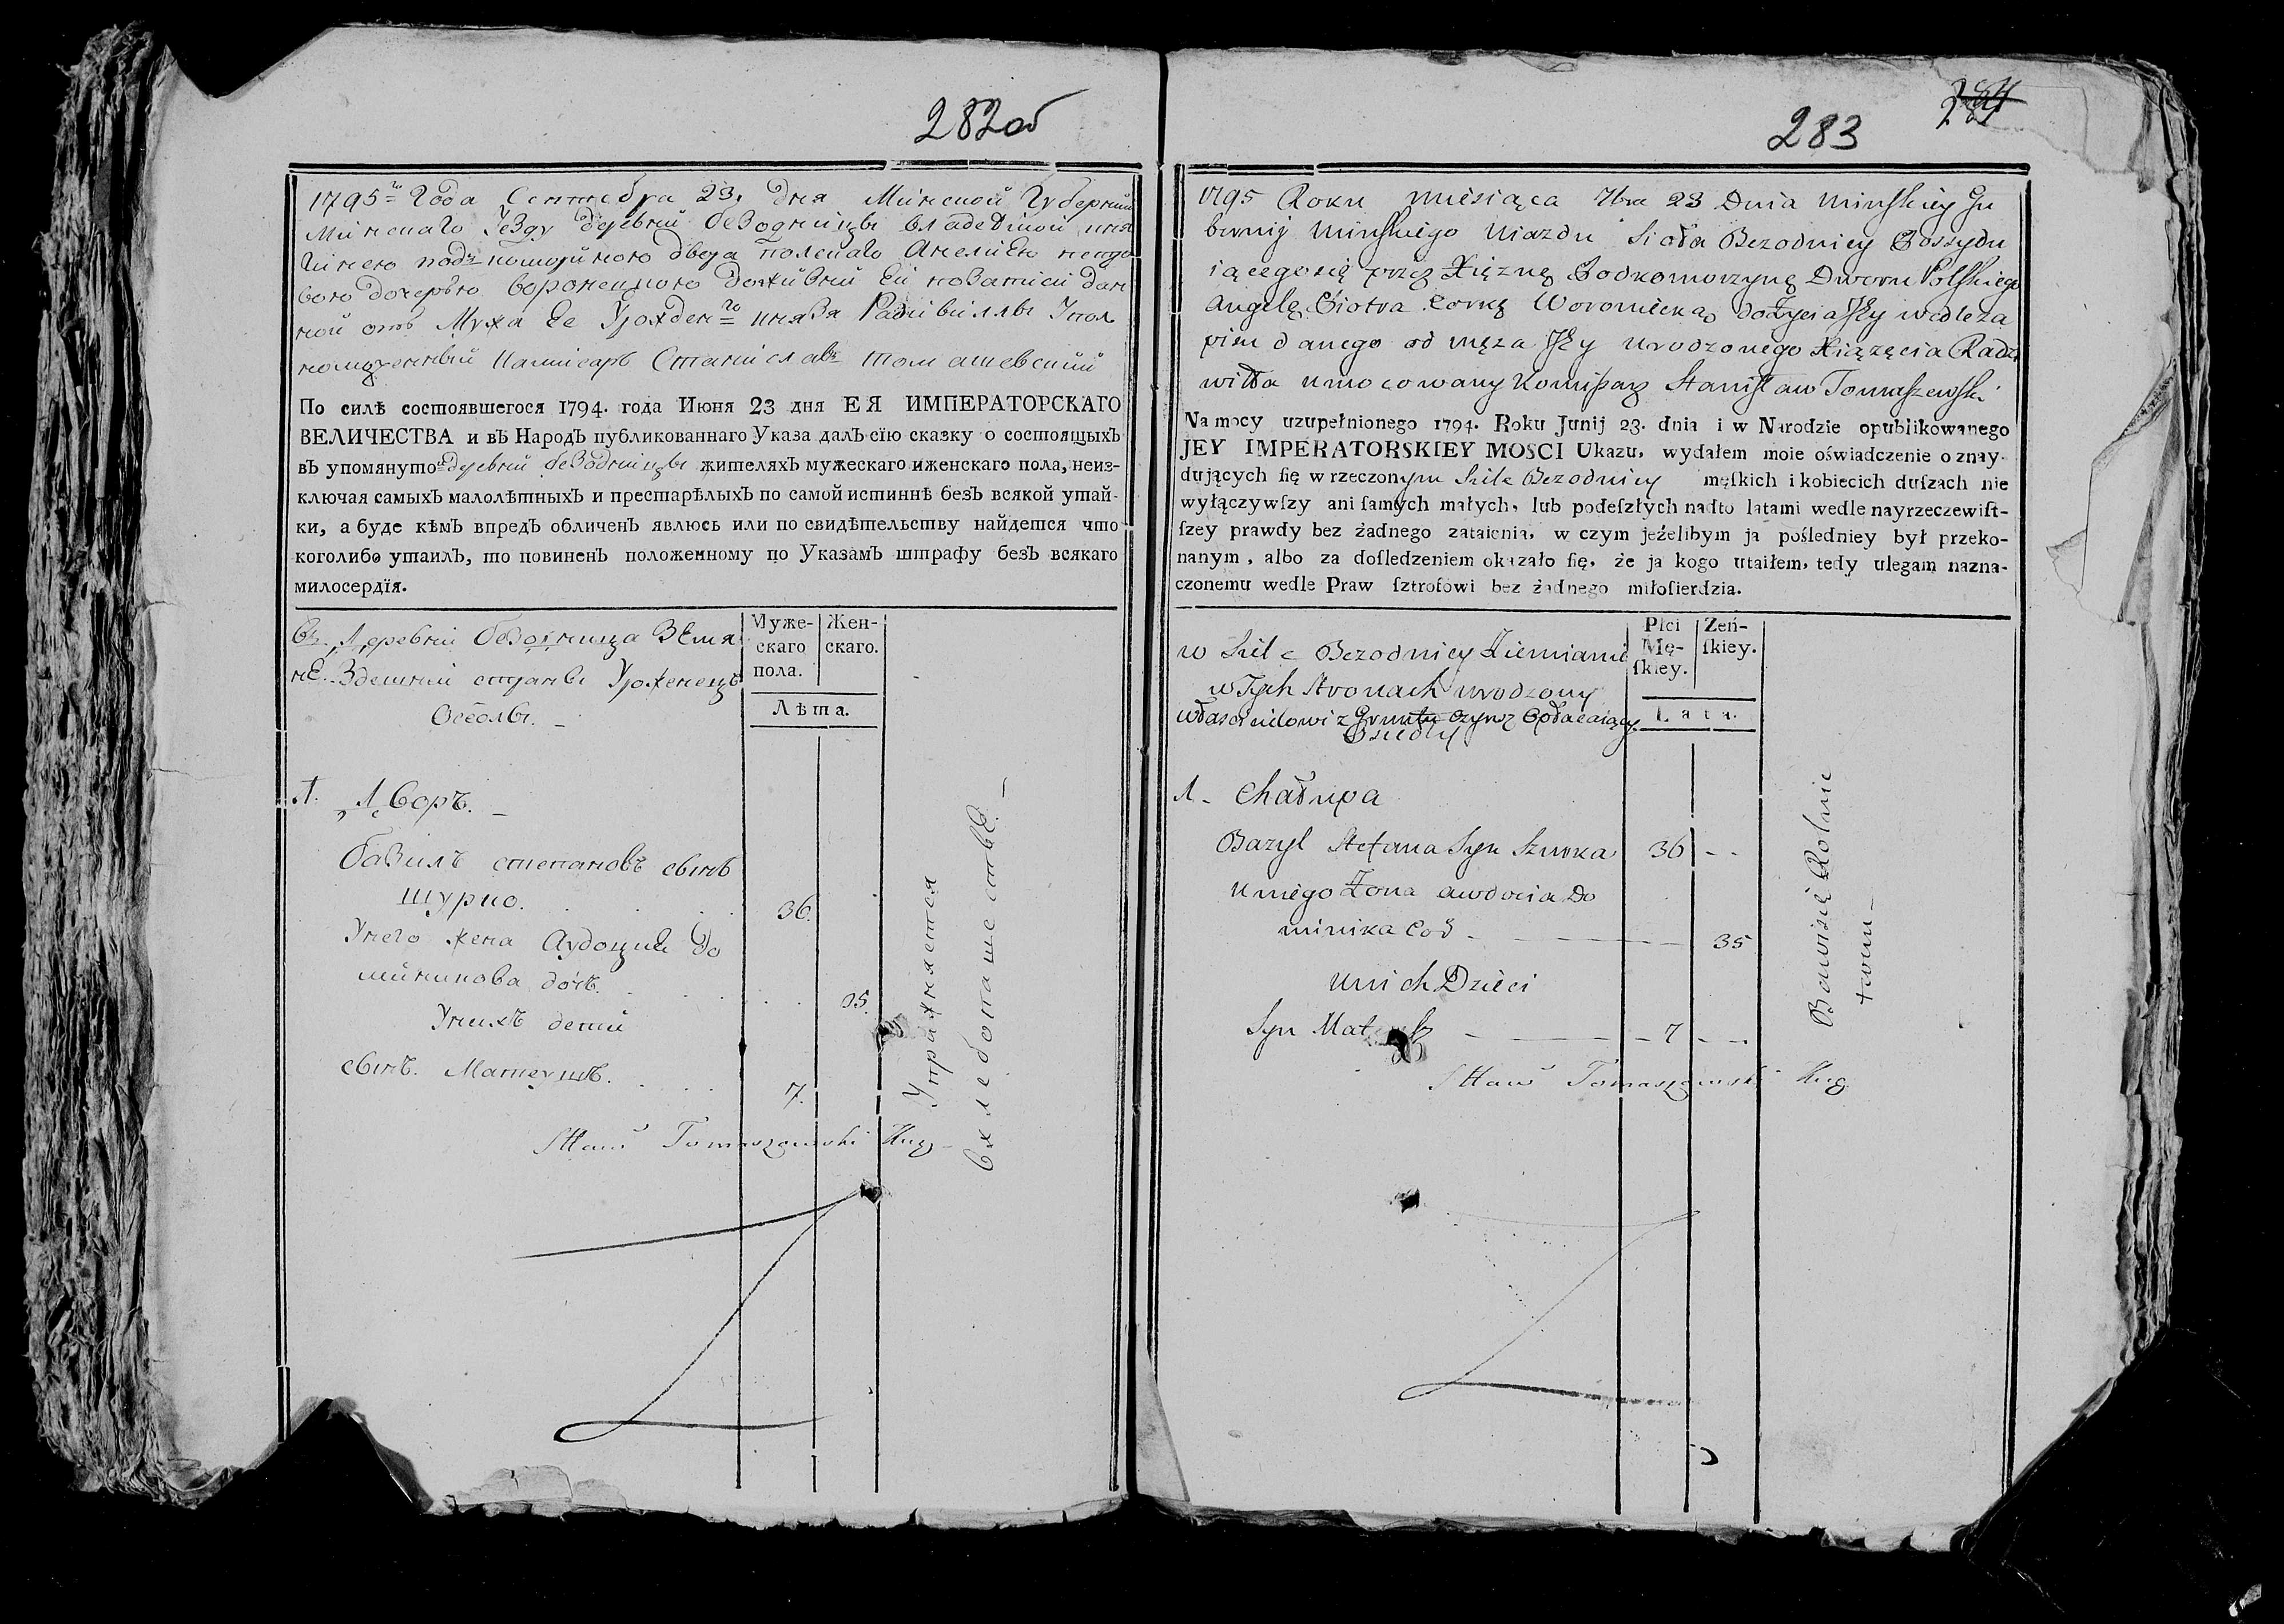 282об
1795го Года Сентебра 23. дня Минской Губернии
Минскаго Уезду деревни безодницы владеемой кня
гинею подкоморйною двора полскаго Анелиею
дочерью воронецкою дожывни Ей по записи дан
ной отъ Мужа Ее Урожденго князя Радзивиллы Упол
номоченный Камисаръ Станиславъ Томашевский
По силѣ состоявшегося 1794. года Июня 23 дня ЕЯ ИМПЕРАТОРСКАГО
ВЕЛИЧЕСТВА и въ Народъ публикованнаго Указа далъ сїю сказку о состоящыхъ
въ упомянутой деревни безодницы жителяхъ мужескаго и женскаго пола, неиз-
ключая самыхъ малолѣтныхъ и престарѣлыхъ по самой истиннѣ безъ всякой утай-
ки, а буде кѣмъ впредъ обличенъ явлюсь или по свидѣтельству найдется что
коголибо утаилъ, то повиненъ положенному по Указамъ штрафу безъ всякаго
милосердїя.
Въ Деревни безодница Земя
не Здешний страны Уроженецъ
Оселы.
Муже-
скаго
пола.
Жен-
скаго.
Лѣта.
1. Дворъ.
базилъ степановъ сынъ
шурпо. 36.
Унего жена Аудоция До
миникова дочь. 35.
Унихъ дети
сынъ. Матеушъ. 7.
Упражняется
в хлебопашестве.
Sttaw Tomaszewski Kug
283
284
1795 Roku miesiąca 7bra 23 Dnia Minskiey Gu
bernij Minskiego Uiazdu Sioła Bezodnicy Possydu
iącego się przez Xięznę Podkomorzynę Dworu Polskiego
Angelę Piotra Corkę Woroniecką dożycia Jey wedle za
pisu danego od męża Jey urodzonego Xiązęcia Radzi
wiłła umocowany Komisarz Stanisław Tomaszewski
Na mocy uzupełnionego 1794. Roku Junij 23. dnia i w Narodzie opublikowanego
JEY IMPERATORSKIEY MOSCI Ukazu, wydałem moie oświadczenie o znay-
dujących ſię w rzeczonym Siele Bezodnicy męſkich i kobiecich duſzach nie
wyłączywſzy ani ſamych małych, lub podeſzłych nadto latami wedle nayrzeczewiſt-
ſzey prawdy bez żadnego zataienia, w czym jeżelibym ja pośledniey był przeko-
nanym, albo za doſledzeniem okazało ſię, że ja kogo utaiłem, tedy ulegam nazna-
czonemu wedle Praw ſztrofowi bez żadnego miłoſierdzia.
w Siele Bezodnicy Ziemianie
w Tych Stronach urodzony
właścicielowi z Gruntu Czynsz Opłacaiący
Osiedły
Płci
Mę-
ſkiey.
Zeń-
ſkiey.
Lata.
1. Chałupa
Bazyl Stefana Syn Szurpa 36 - -
U niego Żona Awdocia Do
minika Cod - 35
U nich Dzieci
Syn Mateusz - 7 - -
Bawi się Rolnic
twem
Sttaw Tomaszewski Kug